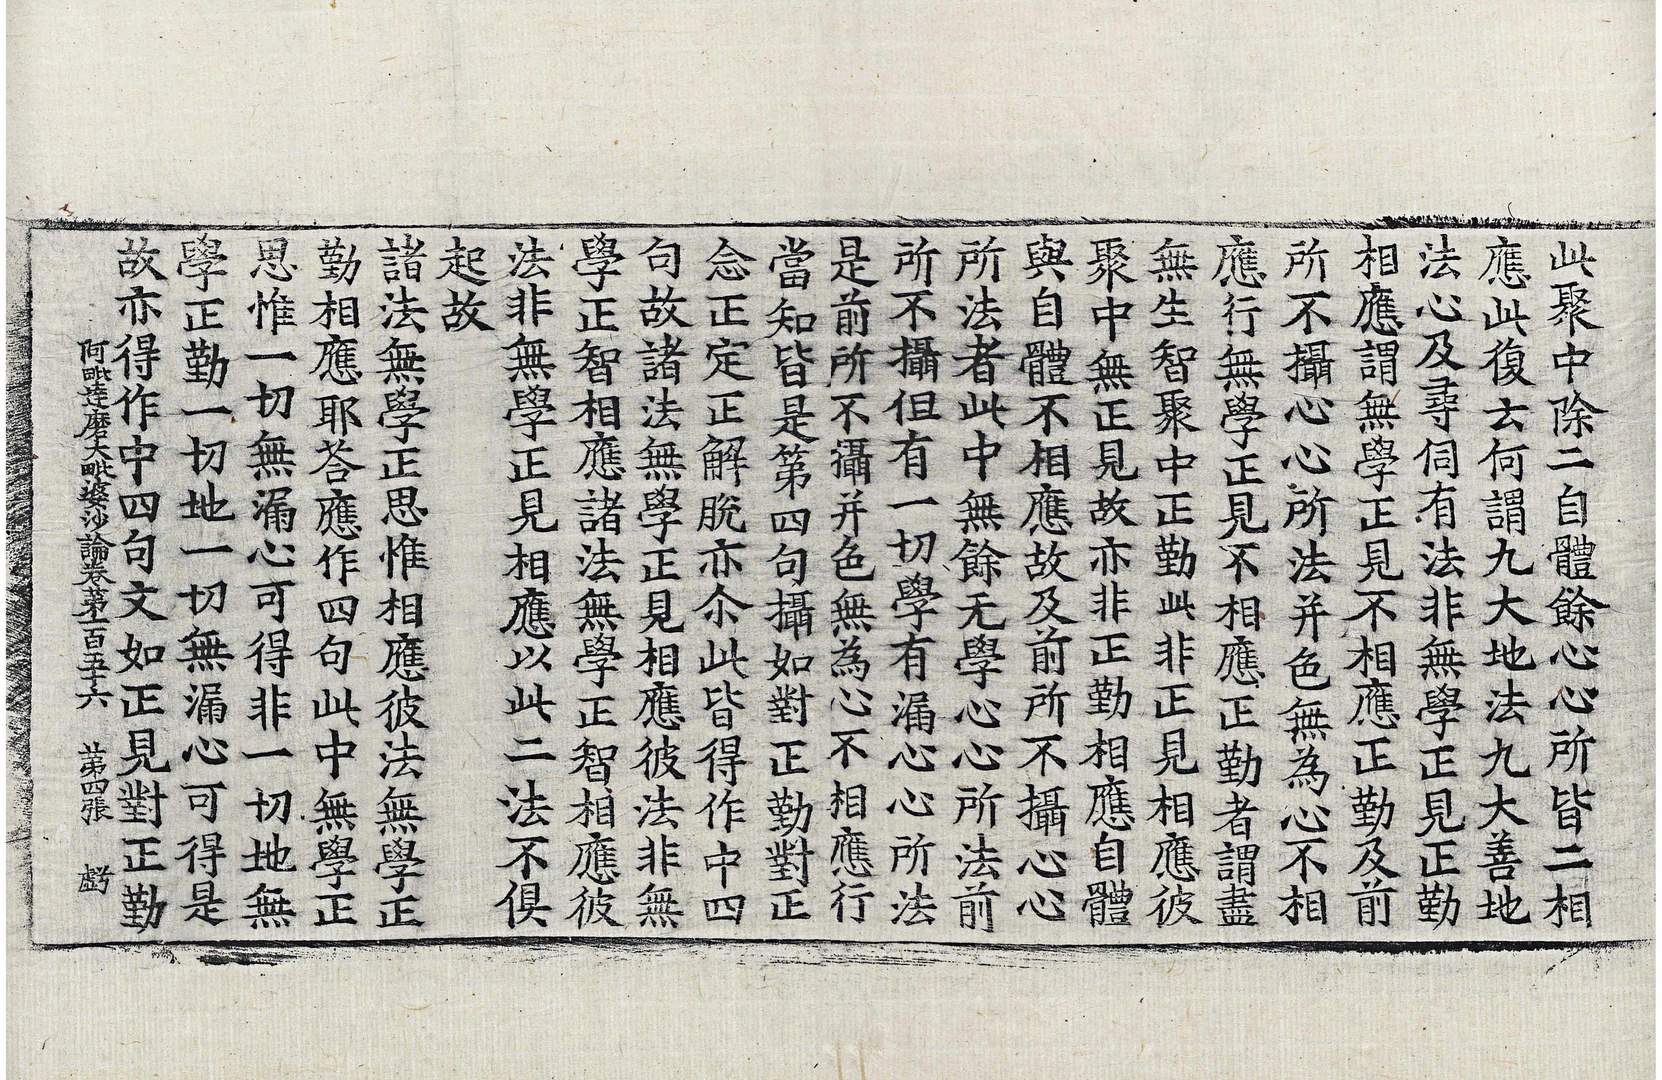 此聚中除二自體餘心心所皆二相
應此復去何謂九大地法九大善地
法心及尋伺有法非無學正見正勤
相應謂無學正見不相應正勤及前
所不攝心心所法并色無為心不相
應行無學正見不相應正勤者謂盡
無生智聚中正勤此非正見相應彼
聚中無正見故亦非正勤相應自體
與自體不相應故及前所不攝心心
所法者此中無餘无學心心所法前
所不攝但有一切學有漏心心所法
是前所不攝并色無為心不相應行
當知皆是第四句攝如對正勤對正
念正定正解脫亦尒此皆得作中四
句故諸法無學正見相應彼法非無
學正智相應諸法無學正智相應彼
法非無學正見相應以此二法不俱
起故
諸法無學正思惟相應彼法無學正
勤相應耶荅應作四句此中無學正
思惟一切無漏心可得非一切地無
學正勤一切地一切無漏心可得是
故亦得作中四句文如正見對正勤
阿毗達磨大毗婆沙論卷苐一百五十六 苐四張 虧